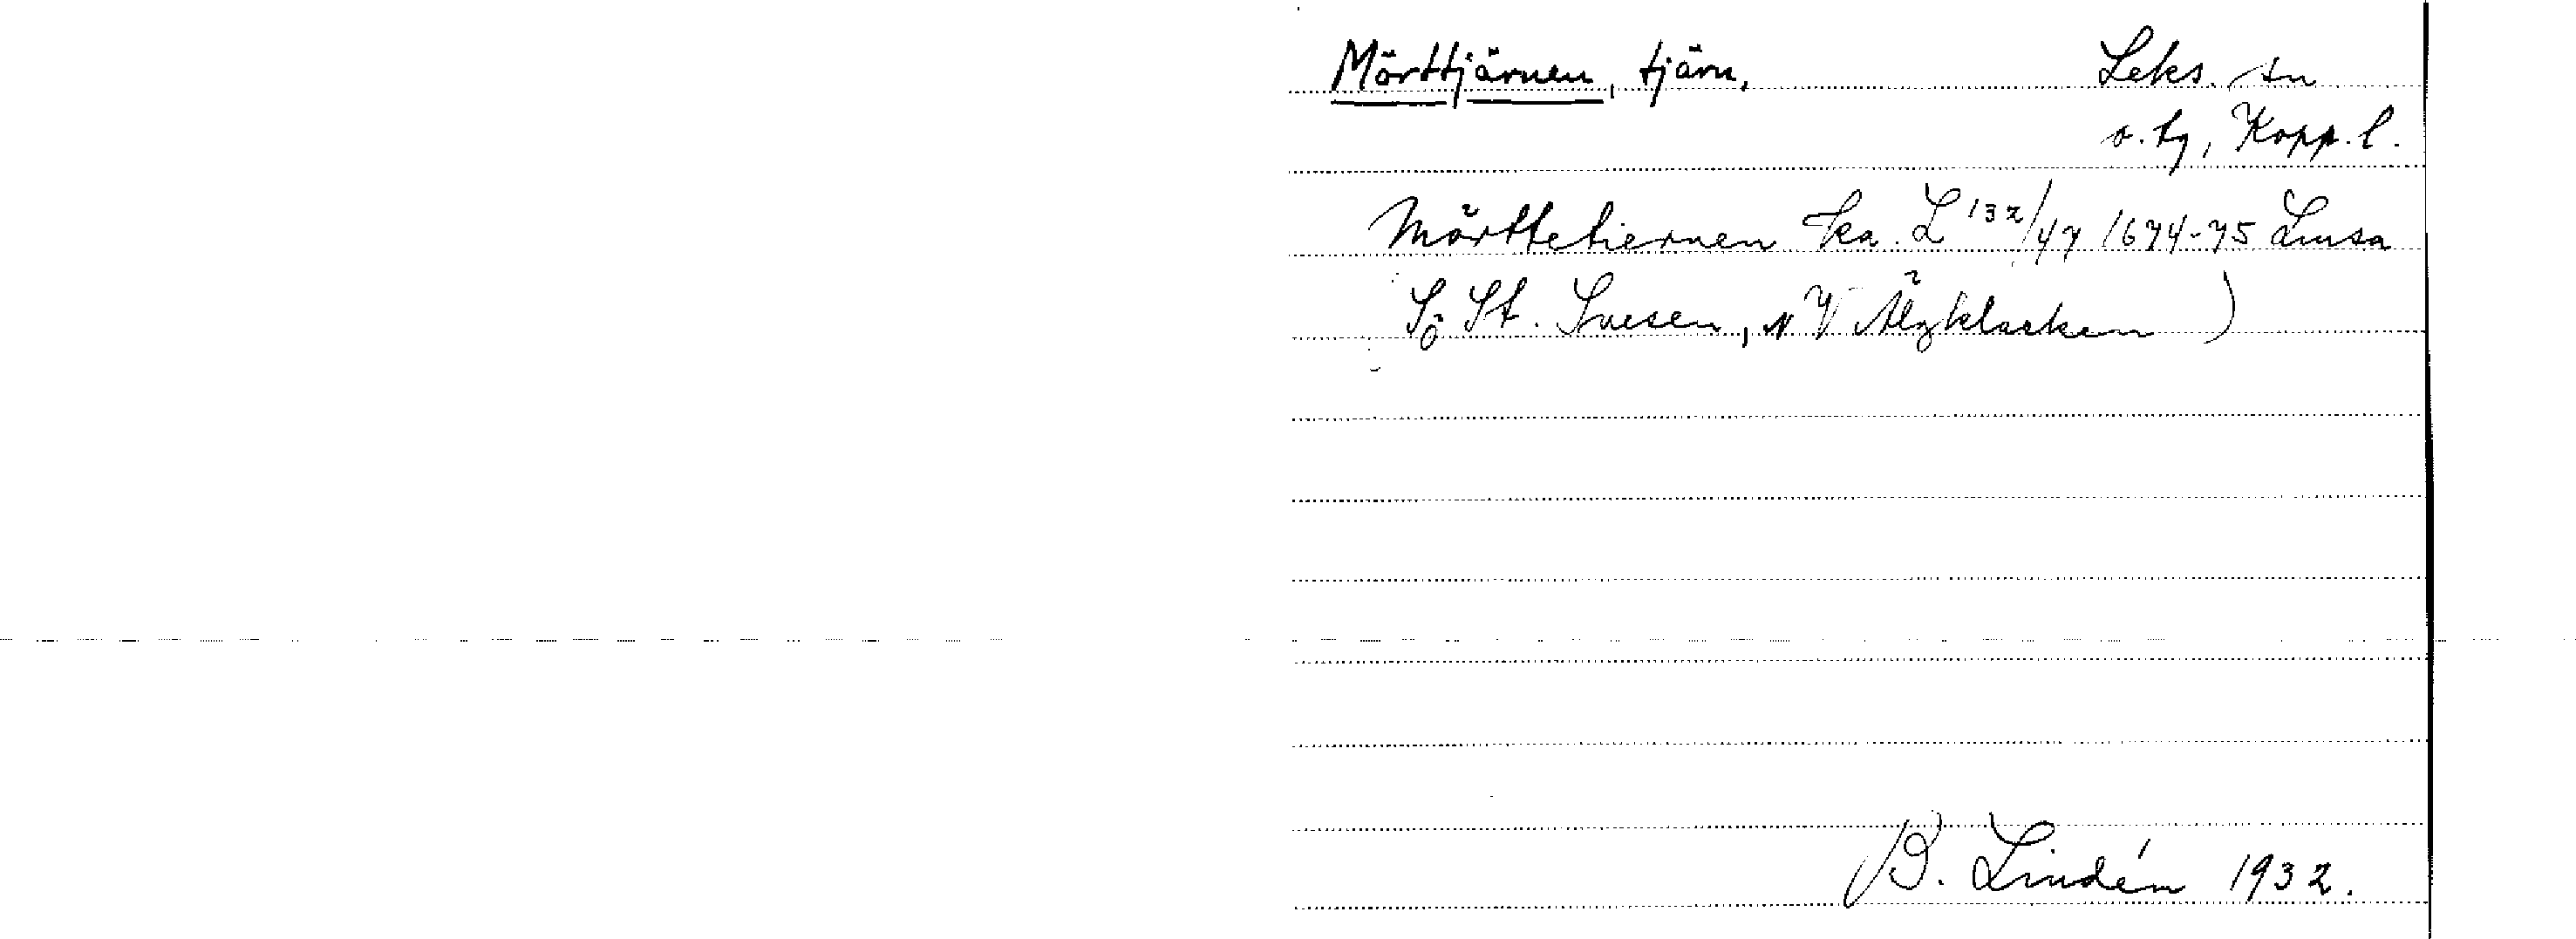 Mörttjärnen, tjärn, Leks. tn
o. lg, Kopp. l.
Mörttetiernen ka. L 132/47 1674-75 Linsa
SÖ St. Snesen, N V Älgklacken )
B. Lindén 1932.